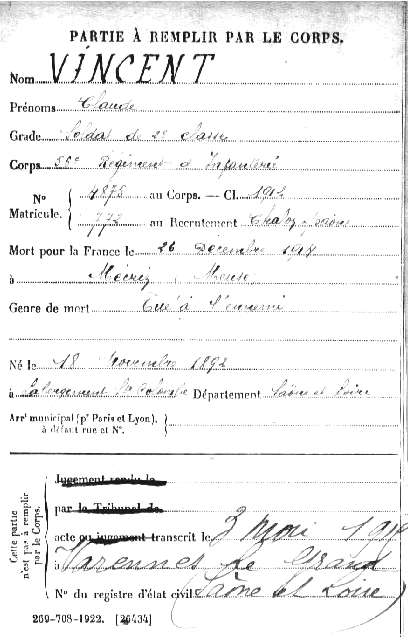 PARTIE À REMPLIR PAR LE CORPS.
Nom VINCENT
Prénoms Claude
Grade Soldat de 2e classe
Corps 56e Régiment d'Infanterie
N° Matricule. 4875 au Corps. — Cl. 1912
773 au Recrutement Chalon s/Saône
Mort pour la France le 26 Décembre
à Mécrin, Meuse
Genre de mort Tué à l'ennemi
Né le 18 Novembre 1892
à Département Saône et Loire
Arrt municipal (pr Paris et Lyon),
à défaut rue et N°.
Cette partie n'est pas à remplir par le Corps.
Jugement rendu le
par le Tribunal de
acte ou jugement transcrit le 3 Mai
à Varennes le Grand
N° du registre d'état civil (Saône et Loire)
269-708-1922. [26434]